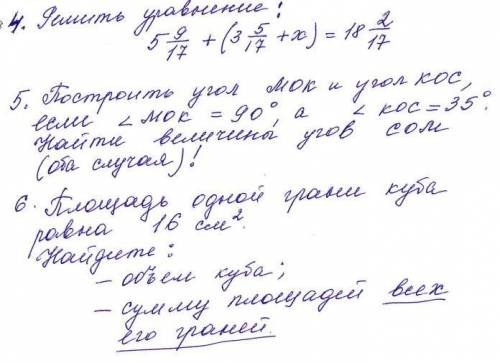 4. Решить уравнение:
5 9/17 + (3 5/17 + x) = 18 2/17
5. Построить угол МОК и угол КОС,
если ∠МОК = 90°, а ∠КОС = 35°.
Найти величины угов СОМ
(оба случая)!
6. Площадь одной грани куба
равна 16 см².
Найдите:
– объем куба;
– сумму площадей всех
его граней.